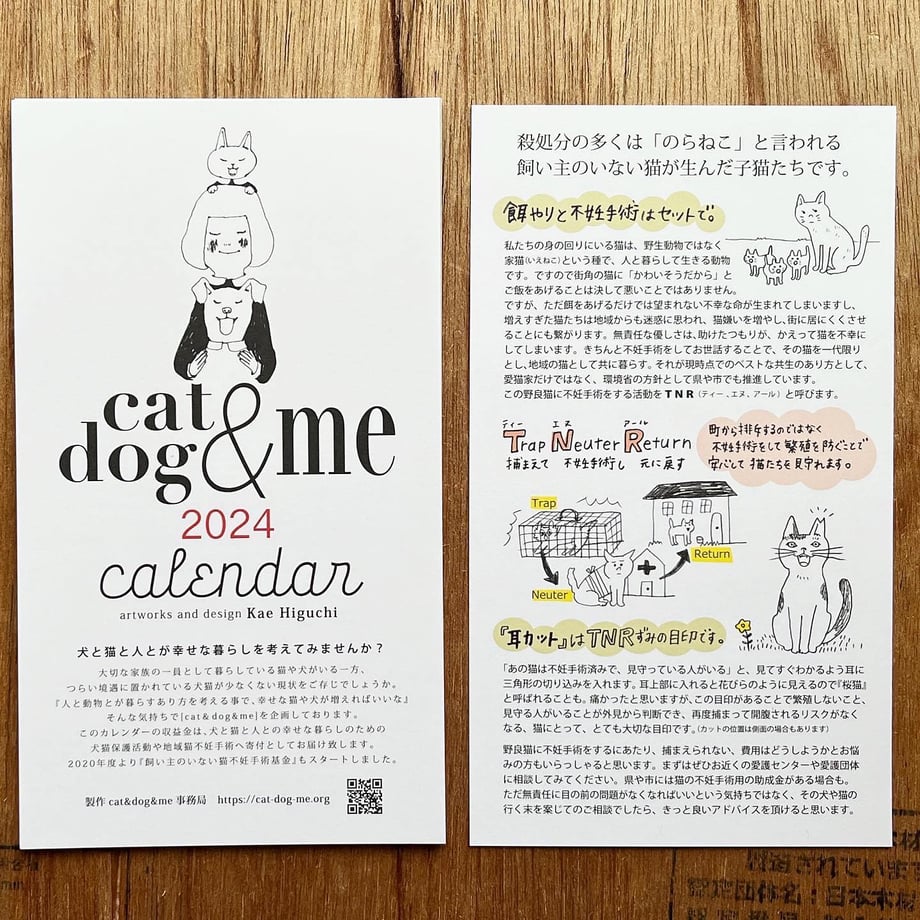 cat
dog&me
2024
calendar
artworks and design Kae Higuchi
犬と猫と人とが幸せな暮らしを考えてみませんか？
大切な家族の一員として暮らしている猫や犬がいる一方、
つらい境遇に置かれている犬猫が少なくない現状をご存じでしょうか。
『人と動物とが暮らすあり方を考える事で、幸せな猫や犬が増えればいいな』
そんな気持ちで[cat&dog&me]を企画しております。
このカレンダーの収益金は、犬と猫と人との幸せな暮らしのための
犬猫保護活動や地域猫不妊手術へ寄付としてお届け致します。
2020年度より『飼い主のいない猫不妊手術基金』もスタートしました。
製作 cat&dog&me 事務局 https://cat-dog-me.org
殺処分の多くは「のらねこ」と言われる
飼い主のいない猫が生んだ子猫たちです。
餌やりと不妊手術はセットで。
私たちの身の回りにいる猫は、野生動物ではなく
家猫(いえねこ)という種で、人と暮らして生きる動物
です。ですので街角の猫に「かわいそうだから」と
ご飯をあげることは決して悪いことではありません。
ですが、ただ餌をあげるだけでは望まれない不幸な命が生まれてしまいますし、
増えすぎた猫たちは地域からも迷惑に思われ、猫嫌いを増やし、街に居にくくさせ
ることにも繋がります。無責任な優しさは、助けたつもりが、かえって猫を不幸に
してしまいます。きちんと不妊手術をしてお世話することで、その猫を一代限り
とし、地域の猫として共に暮らす。それが現時点でのベストな共生のあり方として、
愛猫家だけではなく、環境省の方針として県や市でも推進しています。
この野良猫に不妊手術をする活動をTNR(ティー、エヌ、アール)と呼びます。
ティー エヌ アール
Trap Neuter Return
捕まえて 不妊手術し 元に戻す
町から排斥するのではなく
不妊手術をして繁殖を防ぐことで
安心して猫たちを見守れます。
Trap
Return
Neuter
『耳カット』はTNRずみの目印です。
「あの猫は不妊手術済みで、見守っている人がいる」と、見てすぐわかるよう耳に
三角形の切り込みを入れます。耳上部に入れると花びらのように見えるので『桜猫』
と呼ばれることも。痛かったと思いますが、この目印があることで繁殖しないこと、
見守る人がいることが外見から判断でき、再度捕まって開腹されるリスクがなく
なる、猫にとって、とても大切な目印です。(カットの位置は側面の場合もあります)
野良猫に不妊手術をするにあたり、捕まえられない、費用はどうしようかとお悩
みの方もいらっしゃると思います。まずはぜひお近くの愛護センターや愛護団体
に相談してみてください。県や市には猫の不妊手術用の助成金がある場合も。
ただ無責任に目の前の問題がなくなればいいという気持ちではなく、その犬や猫の
行く末を案じてのご相談でしたら、きっと良いアドバイスを頂けると思います。
されていま
団体名：日本木